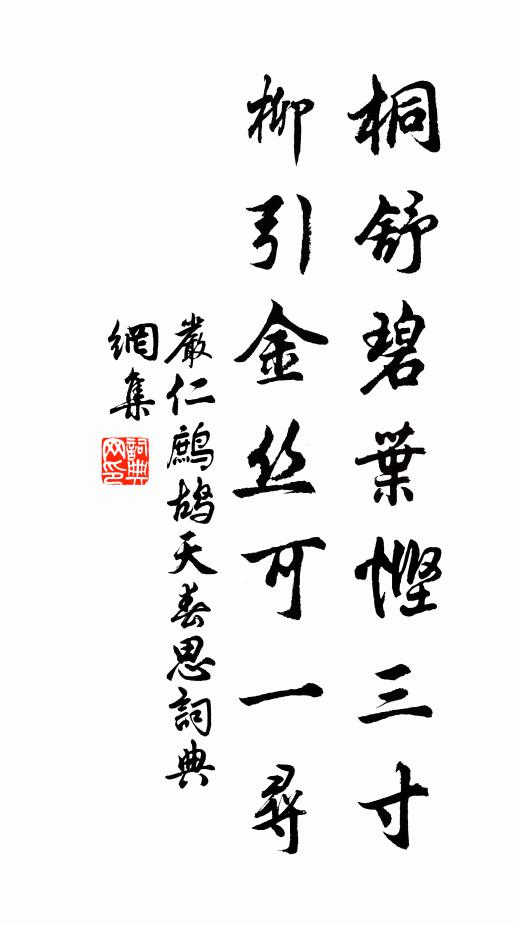 桐舒碧葉慳三寸
柳引金丝可一尋
嚴仁鷓鴣天春思詞典
網集
詞典
网印